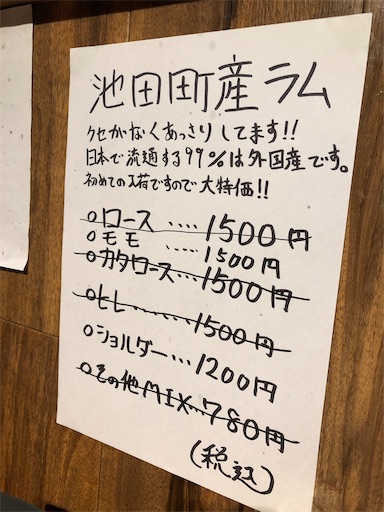 池田町産ラム
クセがなくあっさりしてます!!
日本で流通する99%は外国産です。
初めての入荷ですので大特価!!
○ロース....1500円
○モモ ....1500円
○カタロース...1500円
○ヒレ......1500円
○ショルダー...1200円
○その他MIX...780円
(税込)